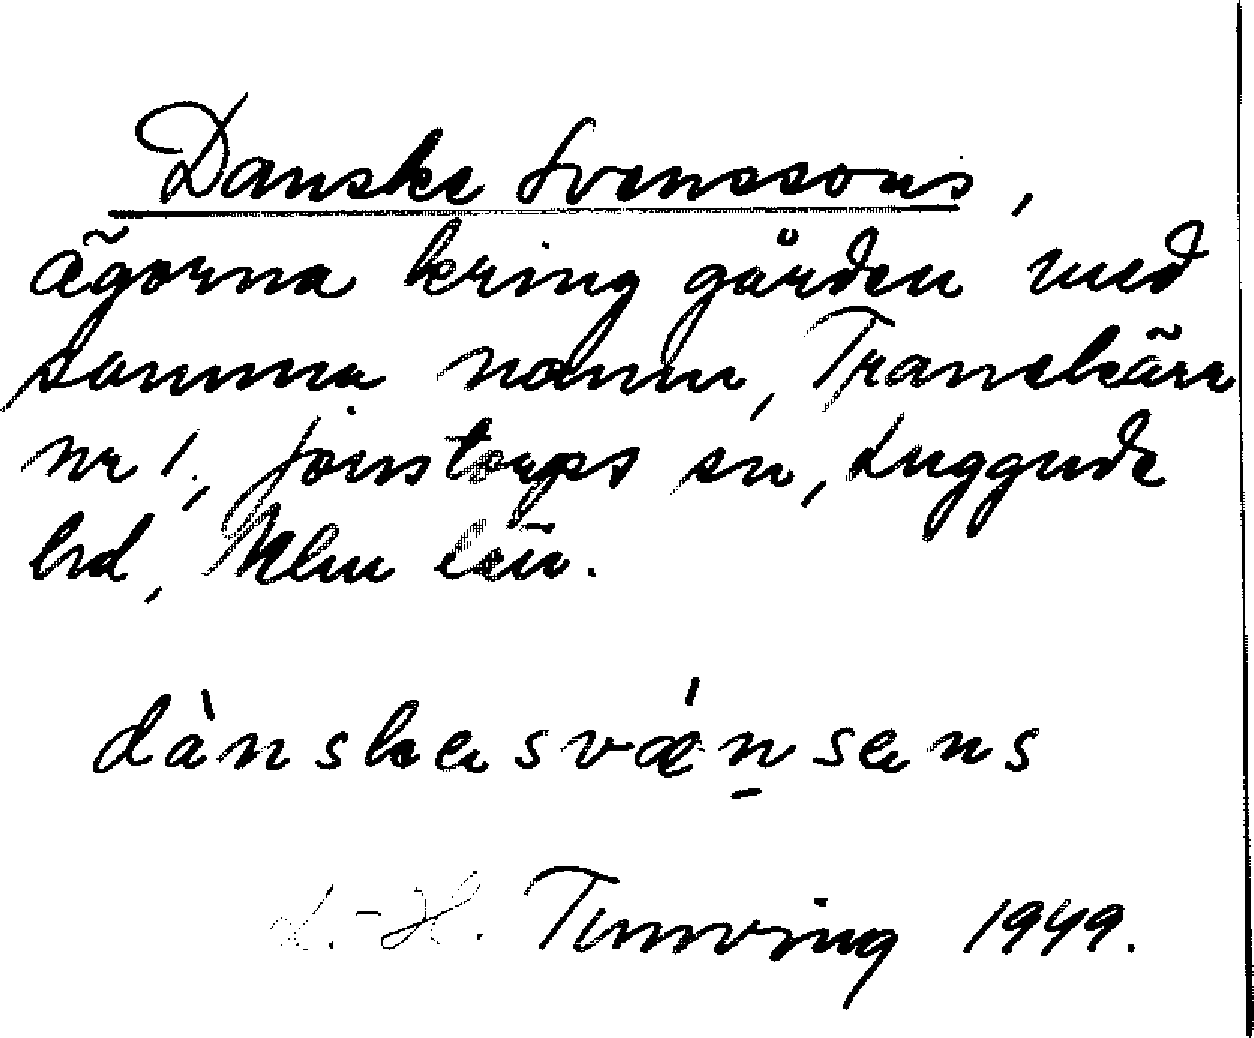 Danske Svenssons,
ägorna kring gården med
samma namn, Tranekärr
nr 1, Jonstorps sn, Luggude
hd, Mlm län.
dànskesvǽṉsens
L.-H. Tunving 1949.